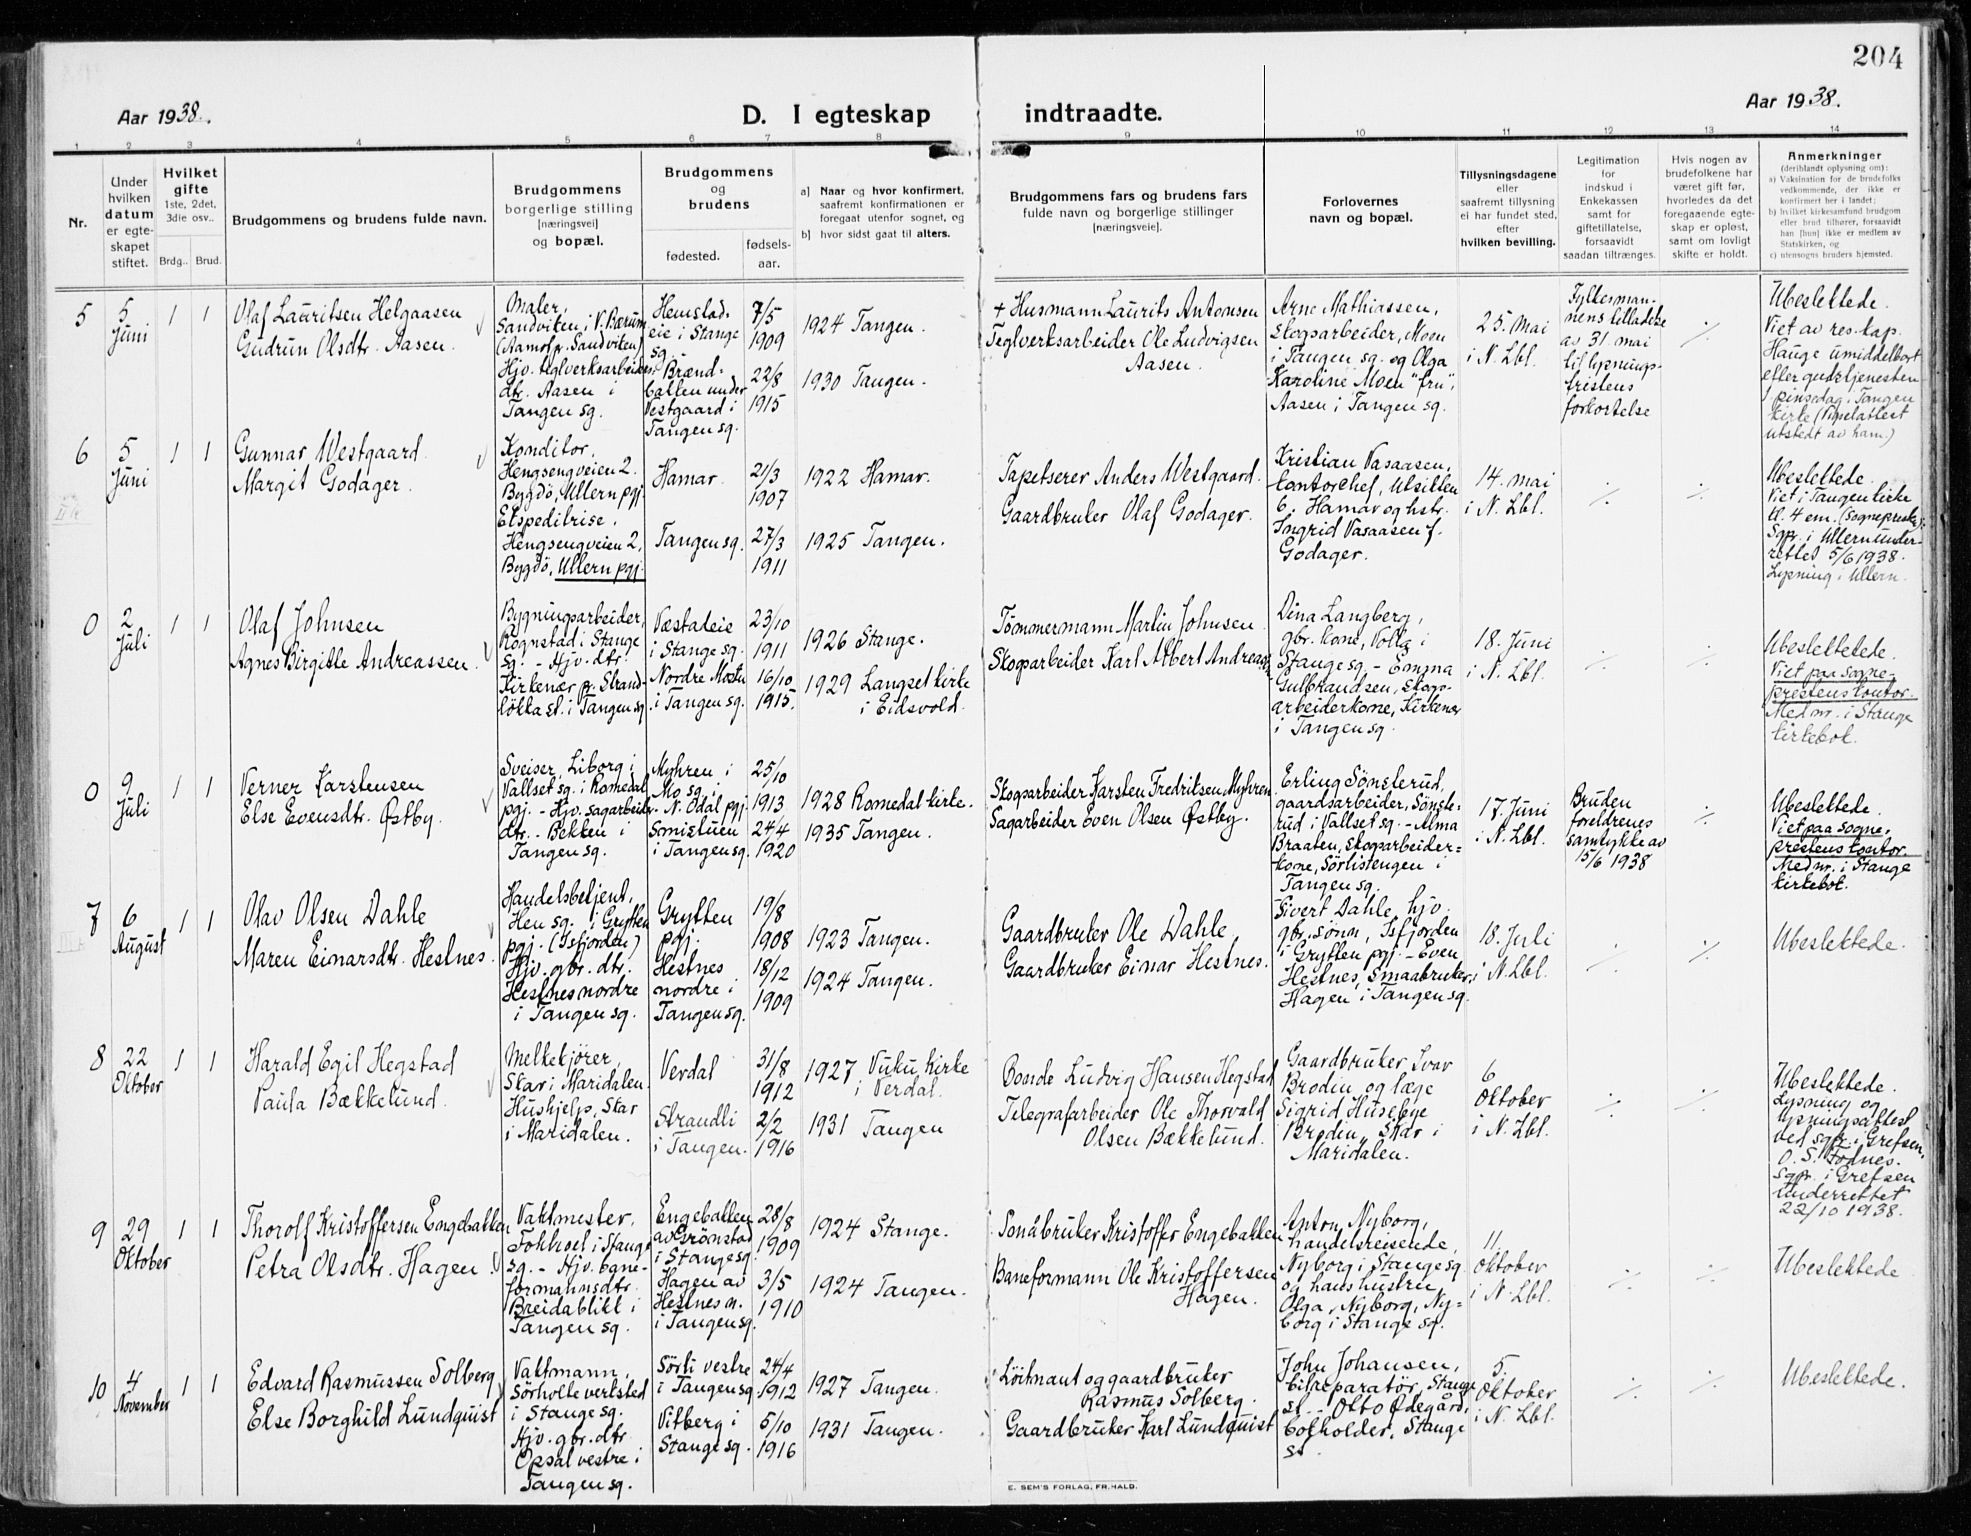 204
Aar 1938.
D. I egteskap
indtraadte.
Aar 1938.
1 2 3 4 5 6 7 8 9 10 11 12 13 14
Nr.
Under
hvilken
datum
er egte-
skapet
stiftet.
Hvilket
gifte
1ste, 2det,
3die osv..
Brdg.. Brud.
Brudgommens og brudens fulde navn.
Brudgommens
borgerlige stilling
[næringsvei]
og bopæl.
Brudgommens
og
brudens
fødested.
fødsels-
aar.
a] Naar og hvor konfirmert,
saafremt konfirmationen er
foregaat utenfor sognet, og
b] hvor sidst gaat til alters.
Brudgommens fars og brudens fars
fulde navn og borgerlige stillinger
[næringsveie].
Forlovernes
navn og bopæl.
Tillysningsdagene
eller
saafremt tillysning
ei har fundet sted,
efter
hvilken bevilling.
Legitimation
for
indskud i
Enkekassen
samt for
giftetillatelse,
forsaavidt
saadan tiltrænges.
Hvis nogen av
brudefolkene har
været gift før,
hvorledes da det
foregaaende egte-
skap er opløst,
samt om lovligt
skifte er holdt.
Anmerkninger
(deriblandt oplysning om):
a) Vaksination for de brudefolks
vedkommende, der ikke er
konfirmert her i landet;
b) hvilket kirkesamfund brudgom
eller brud tilhører, forsaavidt
han [hun] ikke er medlem av
Statskirken, og
c) utensogns bruders hjemsted.
5
5
Juni
1 1
Olaf Lauritsen Helgaasen
Gudrun Olsdtr. Aasen
Maler,
Sandviken i V. Bærum
(Aamot pr. Sandviken)
Hjv. teglverksarbeider
dtr. Aasen i
Tangen sg.
Hemstad-
eie i Stange
sg.
Brænd-
ballen under
Vestgaard i
Tangen sg.
7/5
1909
22/8
1915
1924 Tangen.
1930 Tangen.
+ Husmann Laurits Antonsen
Teglverksarbeider Ole Ludvigsen
Aasen.
Arne Mathiassen,
skogsarbeider, Moen
i Tangen sg. og Olga
Karoline Moen "fru",
Aasen i Tangen sg.
25. mai
i N. Lbl.
Fylkesman-
nens tilladelse
av 31. mai
til lysnings-
fristens
forkortelse
./.
Ubeslektede.
Viet av res. kap.
Hauge umiddelbart
efter gudstjenesten
1. pinsedag i Tangen
kirke (Vigselattest
utstedt av ham.)
6
5
Juni
1 1
Gunnar Westgaard.
Margit Godager.
Konditor.
Hengsengveien 2.
Bygdö, Ullern pgj.
Ekspeditrise.
Hengsengveien 2,
Bygdö, Ullern pgj.
Hamar.
Tangen sg.
21/3
1907
27/3
1911
1922 Hamar.
1925 Tangen.
Tapetserer Anders Westgaard.
Gaardbruker Olaf Godager.
Kristian Vasaasen,
kontorchef, Utsikten
6. Hamar og hstr.
Ingrid Vasaasen f.
Godager.
14. mai
i N. Lbl.
./.
./.
Ubeslektede.
Viet i Tangen kirke
kl. 4 em. (Sogneprest).
Sgpr. i Ullern under-
rettet 5/6 1938.
Lysning i Ullern.
0
2
Juli
1 1
Olaf Johnsen
Agnes Birgitte Andreassen.
Bygningsarbeider,
Rognstad i Stange
sg. - Hjv. dtr.
Kirkenær p. Strand-
løkka st. i Tangen sg.
Væstadeie
i Stange sg.
Nordre Moste
i Tangen sg.
23/10
1911
16/10
1915.
1926 Stange.
1929 Langset kirke
i Eidsvold.
Tømmermann Martin Johnsen
Skogsarbeider Karl Albert Andreassen
Dina Langberg,
gbr. kone, Volla i
Stange sg. - Emma
Gulbrandsen, skogs-
arbeiderkone, Kirkenær
i Tangen sg.
18. Juni
i N. Lbl.
./.
./.
Ubeslektede.
Viet paa sogne-
prestens kontor.
Med nr. i Stange
kirkebok.
0
9
Juli
1 1
Verner Karstensen
Else Evensdtr. Østby.
Sveiser, Liborg i
Vallset sg. i Romedal
pgj. - Hjv. sagarbeider-
dtr. - Bekken i
Tangen sg.
Myhren i
Mo sg. i
N. Odal pgj.
Sonistuen
i Tangen sg.
25/10
1913
24/4
1920
1928 Romedal kirke.
1935 Tangen.
Skogsarbeider Karsten Fredriksen Myhren
Sagarbeider Even Olsen Østby.
Erling Sønsterud,
gaardsarbeider, Sønste-
rud i Vallset sg. - Alma
Braaten, skogsarbeider-
kone, Sørlistengen i
Tangen sg.
17. Juni
i N. Lbl.
Bruden
foreldrenes
samtykke av
15/6 1938
./.
Ubeslektede.
Viet paa sogne-
prestens kontor.
Med nr. i Stange
kirkebok.
7
6
August
1 1
Olav Olsen Dahle
Maren Einarsdtr. Hestnes.
Handelsbetjent,
Hen sg. i Grytten
pgj. (Isfjorden)
Hjv. gbr. dtr.
Hestnes nordre
i Tangen sg.
Grytten
pgj.
Hestnes
nordre i
Tangen sg.
19/8
1908
18/12
1909
1923 Tangen.
1924 Tangen.
Gaardbruker Ole Dahle.
Gaardbruker Einar Hestnes.
Sivert Dahle, hjv.
gbr. sønn, Isfjorden
i Grytten pgj. - Even
Hestnes, smaabruker,
Hagen i Tangen sg.
18. Juli
i N. Lbl.
./.
./.
Ubeslektede.
8
22
Oktober
1 1
Harald Egil Hegstad
Paula Bækkelund.
Melkekjører,
Skar i Maridalen.
Hushjelp, Skar
i Maridalen.
Verdal
Strandli
i Tangen.
31/8
1912
2/2
1916
1927 Vuku kirke
i Verdal.
1931 Tangen
Bonde Ludvig Hansen Hegstad
Telegrafarbeider Ole Thorvald
Olsen Bækkelund.
Gaardbruker Ivar
Brodin og læge
Sigrid Huseleye
Brodin, Skar i
Maridalen.
6
Oktober
i N. Lbl.
./.
./.
Ubeslektede.
Lysning og
lysningsattest
ved sgpr. i Grefsen,
O. S. Fodnes.
Sgpr. i Grefsen
underrettet
22/10 1938.
9
29
Oktober
1 1
Thorolf Kristoffersen Engebakken
Petra Olsdtr. Hagen
Vaktmester,
Fokhol i Stange
sg. - Hjv. bane-
formannsdtr.
Breidablikk i
Tangen sg.
Engebakken
av Grønstad
i Stange sg.
Hagen av
Hestnes n.
i Tangen sg.
28/8
1909
3/5
1910
1924 Stange.
1924 Tangen.
Småbruker Kristoffer Engebakken
Baneformann Ole Kristoffersen
Hagen.
Anton Nyborg,
handelsreisende,
Nyborg i Stange sg.
og hans hustru
Olga Nyborg, Ny-
borg i Stange sg.
11.
oktober
i N. Lbl.
./.
./.
Ubeslektede
10
4
November
1 1
Edvard Rasmussen Solberg
Else Borghild Lundquist
Vaktmann,
Sørholte verksted
i Stange sg.
Hjv. gbr. dtr.
Opsal vestre i
Tangen sg.
Sørli vestre
i Tangen sg.
Vitberg i
Stange sg.
24/4
1912
5/10
1916
1927 Tangen.
1931 Tangen.
Løitnant og gaardbruker
Rasmus Solberg.
Gaardbruker Karl Lundquist
John Johansen,
bilreparatør, Stange
st. - Otto Ødegård,
bokholder, Stange
st.
5.
Oktober
i N. Lbl.
./.
./.
Ubeslektede.
E. SEM'S FORLAG, FR.HALD.